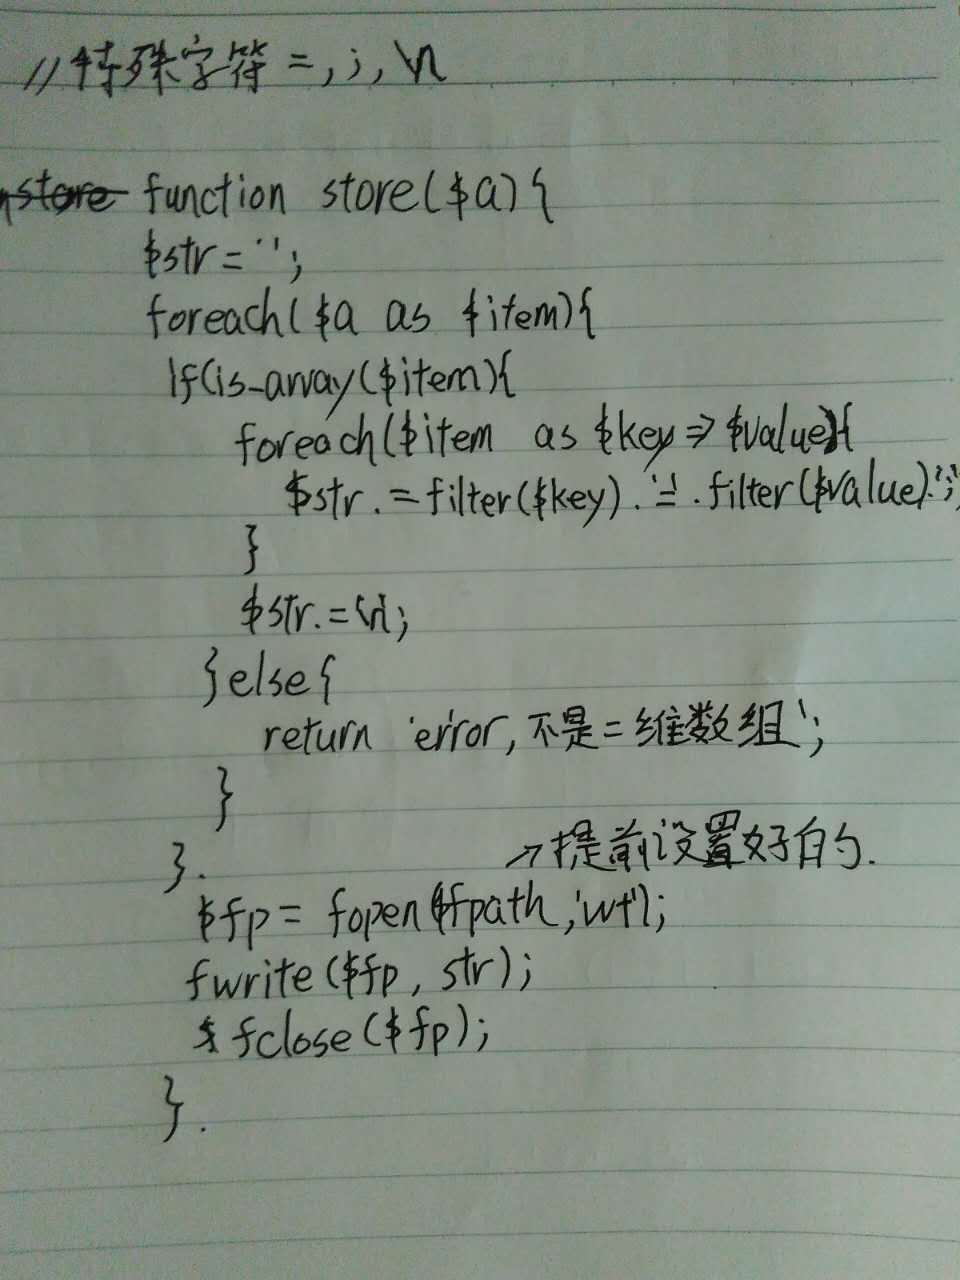 //特殊字符 =, ;, \n
store function store($a){
$str = '';
foreach($a as $item){
If(is_array($item){
foreach($item as $key => $value){
$str .= filter($key) . '=' . filter($value).';';
}
$str .= '\n';
}else{
return 'error, 不是二维数组';
}
}.
→提前设置好的.
$fp = fopen($fpath,'wt');
fwrite($fp, str);
fclose($fp);
}.